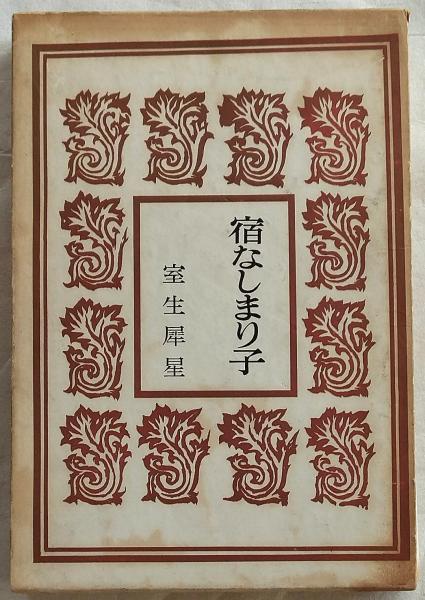 宿なしまり子
室生犀星